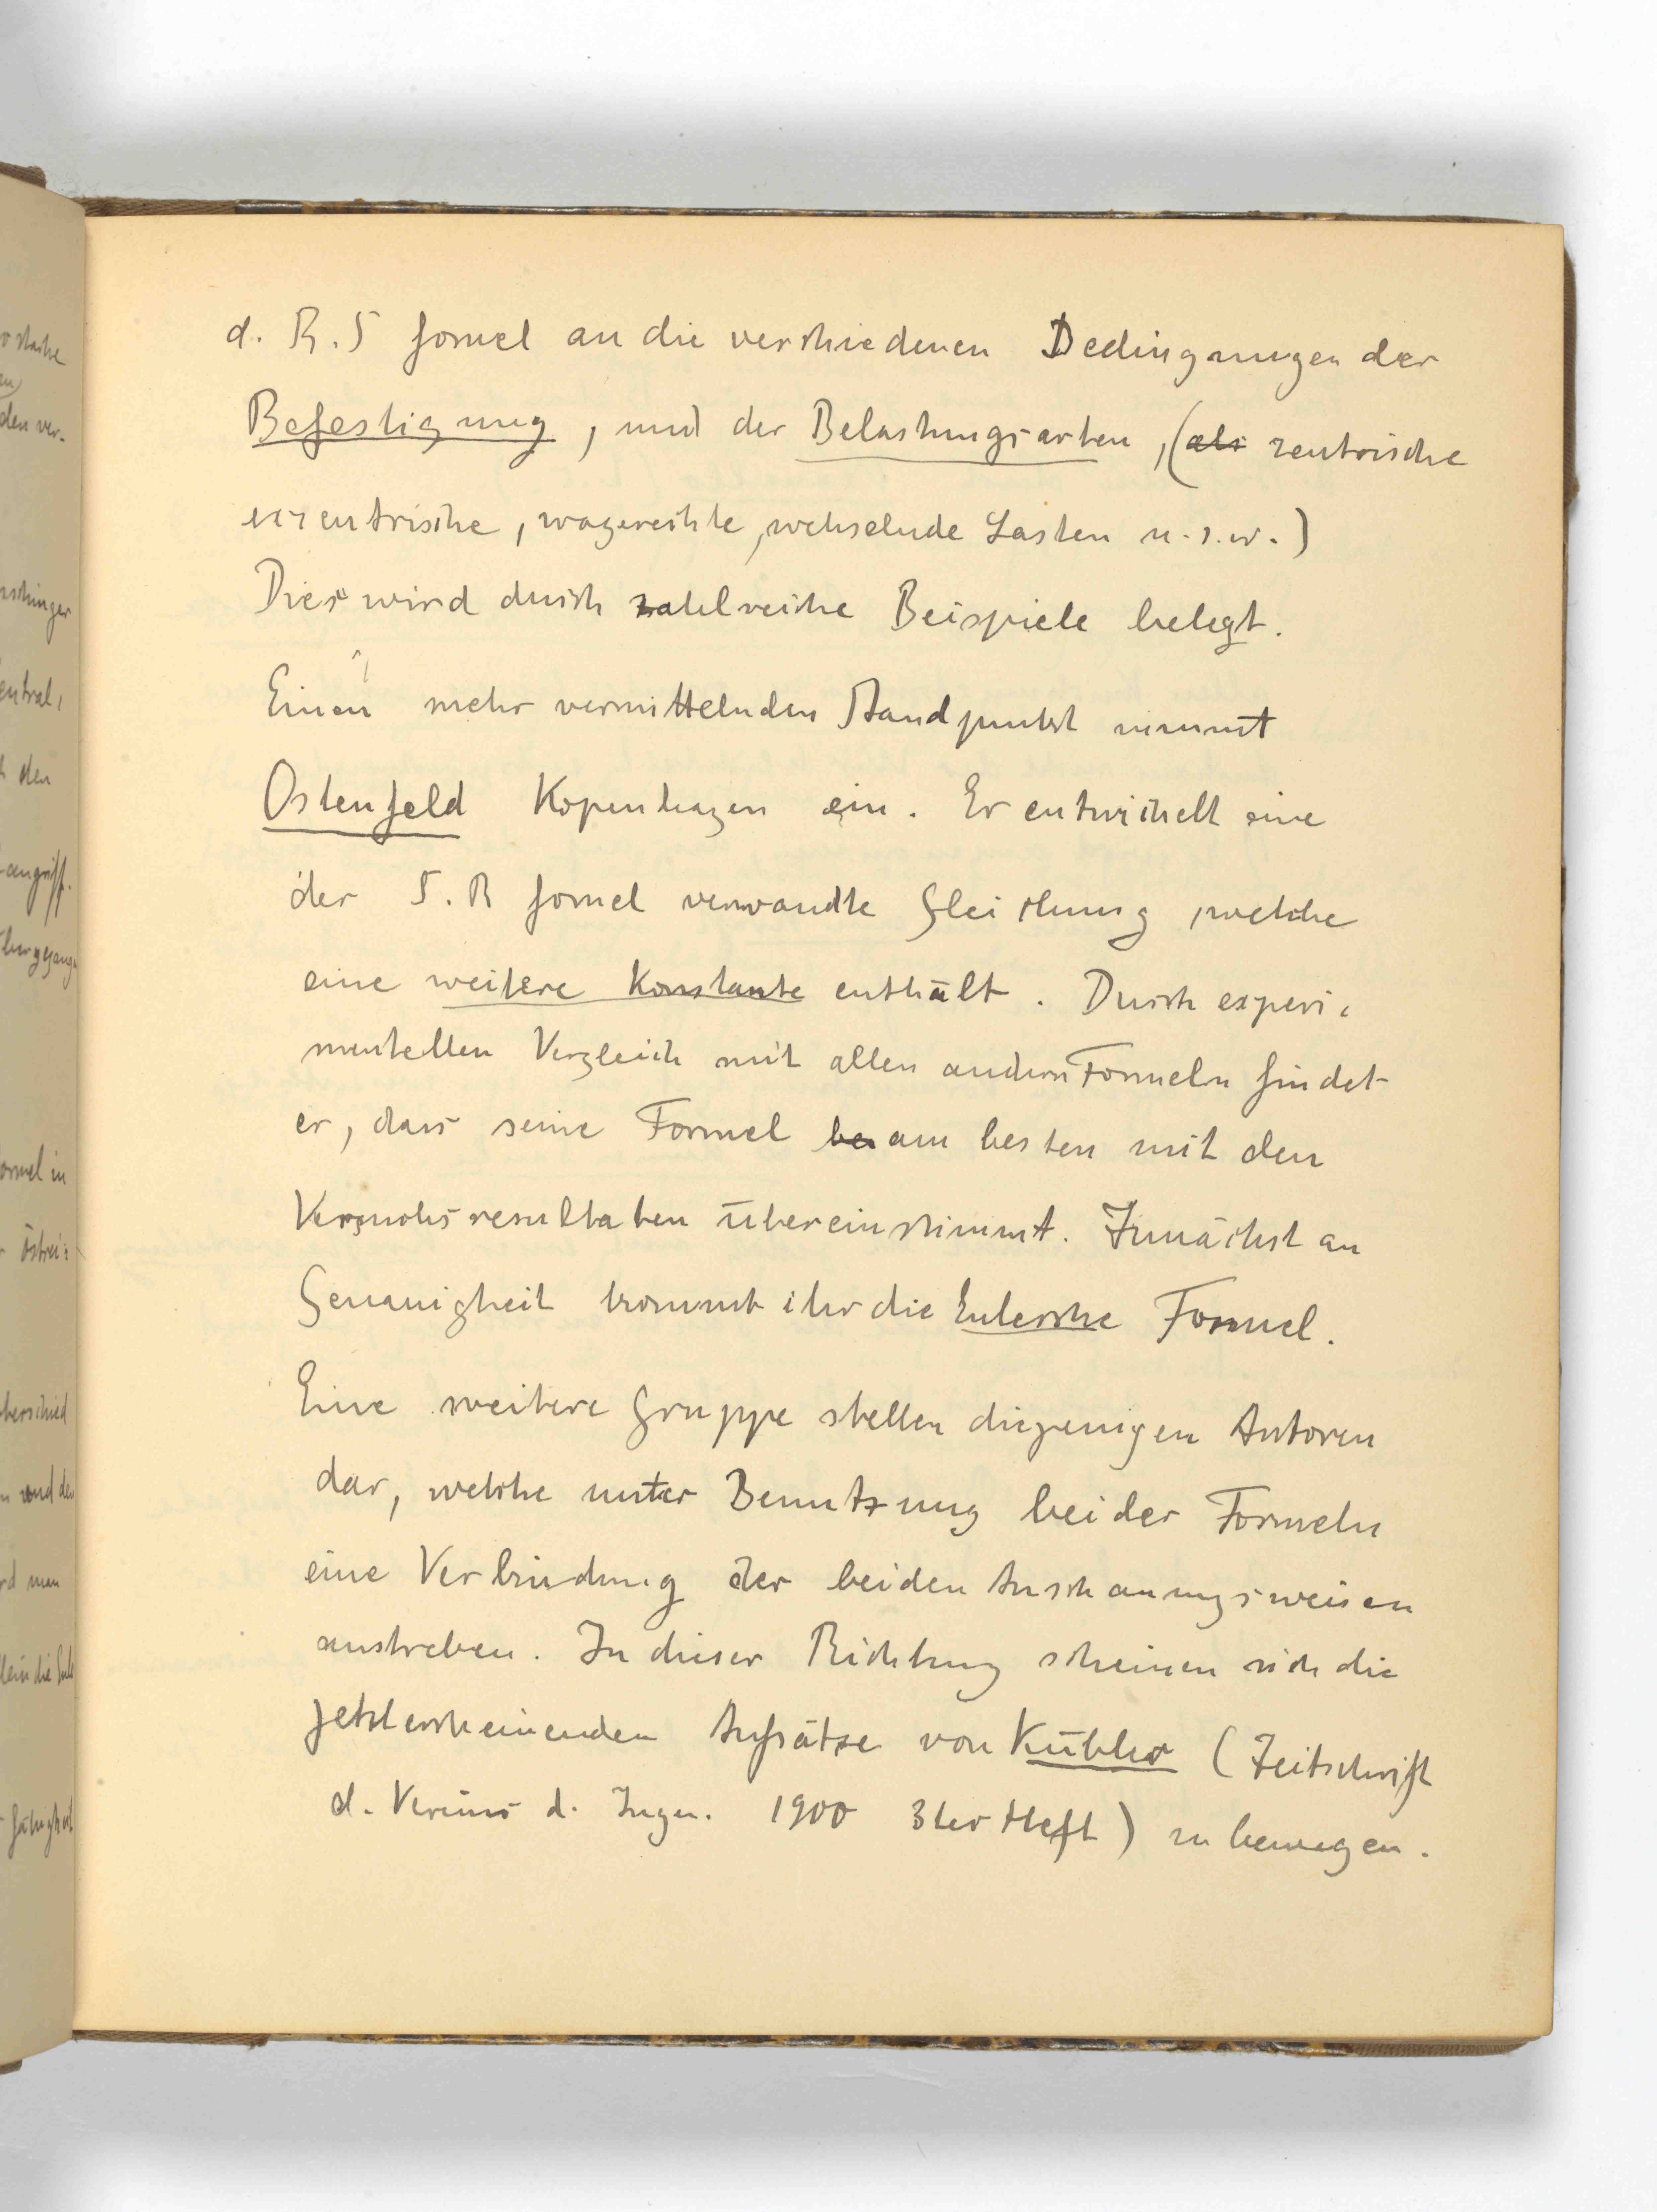 d. R. S formel an die verschiedenen Bedingungen der
Befestigung, und der Belastungsarten, (als zentrische
exzentrische, wagerechte, wechselnde Lasten u.s.w.)
Dies wird durch zahlreiche Beispiele belegt.
Einen mehr vermittelnden Standpunkt nimmt
Ostenfeld Kopenhagen ein. Er entwickelt eine
der S. R formel verwandte Gleichung, welche
eine weitere Konstante enthält. Durch experi-
mentellen Vergleich mit allen andern Formeln findet
er, dass seine Formel be am besten mit den
Versuchsresultaten übereinstimmt. Zunächst an
Genauigkeit kommt ihr die Eulersche Formel.
Eine weitere Gruppe stellen diejenigen Autoren
dar, welche unter Benutzung beider Formeln
eine Verbindung der beiden Anschauungsweisen
anstreben. In dieser Richtung scheinen sich die
jetzterscheinenden Aufsätze von Kübler (Zeitschrift
d. Vereins d. Ingen. 1900 3ter Heft) zu bewegen.
den ver-
entral,
den
angriff.
ormel in
östrei-
und der
rd man